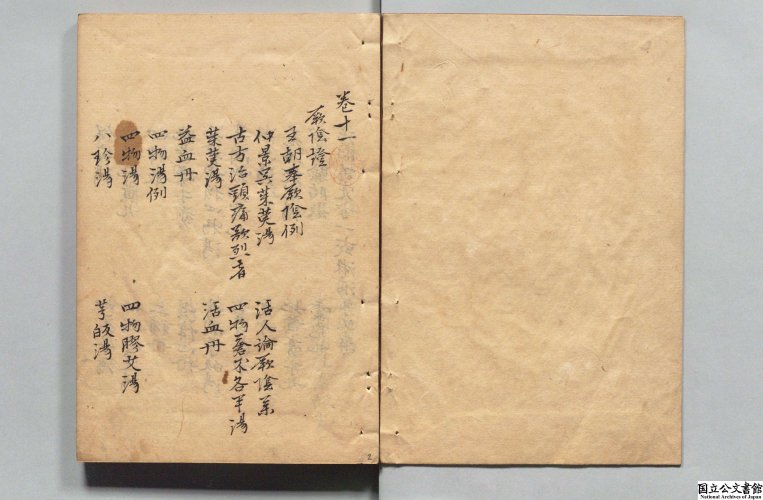 卷十一
厥陰證
王朝奉厥陰例
仲景吳茱萸湯
活人論厥陰藥
古方治頸痛歌烈者
四物蒼朮各半湯
茱萸湯
活血丹
益血丹
四物湯例
四物湯
四物膠艾湯
八珍湯
芎歸湯
2
国立公文書館
National Archives of Japan